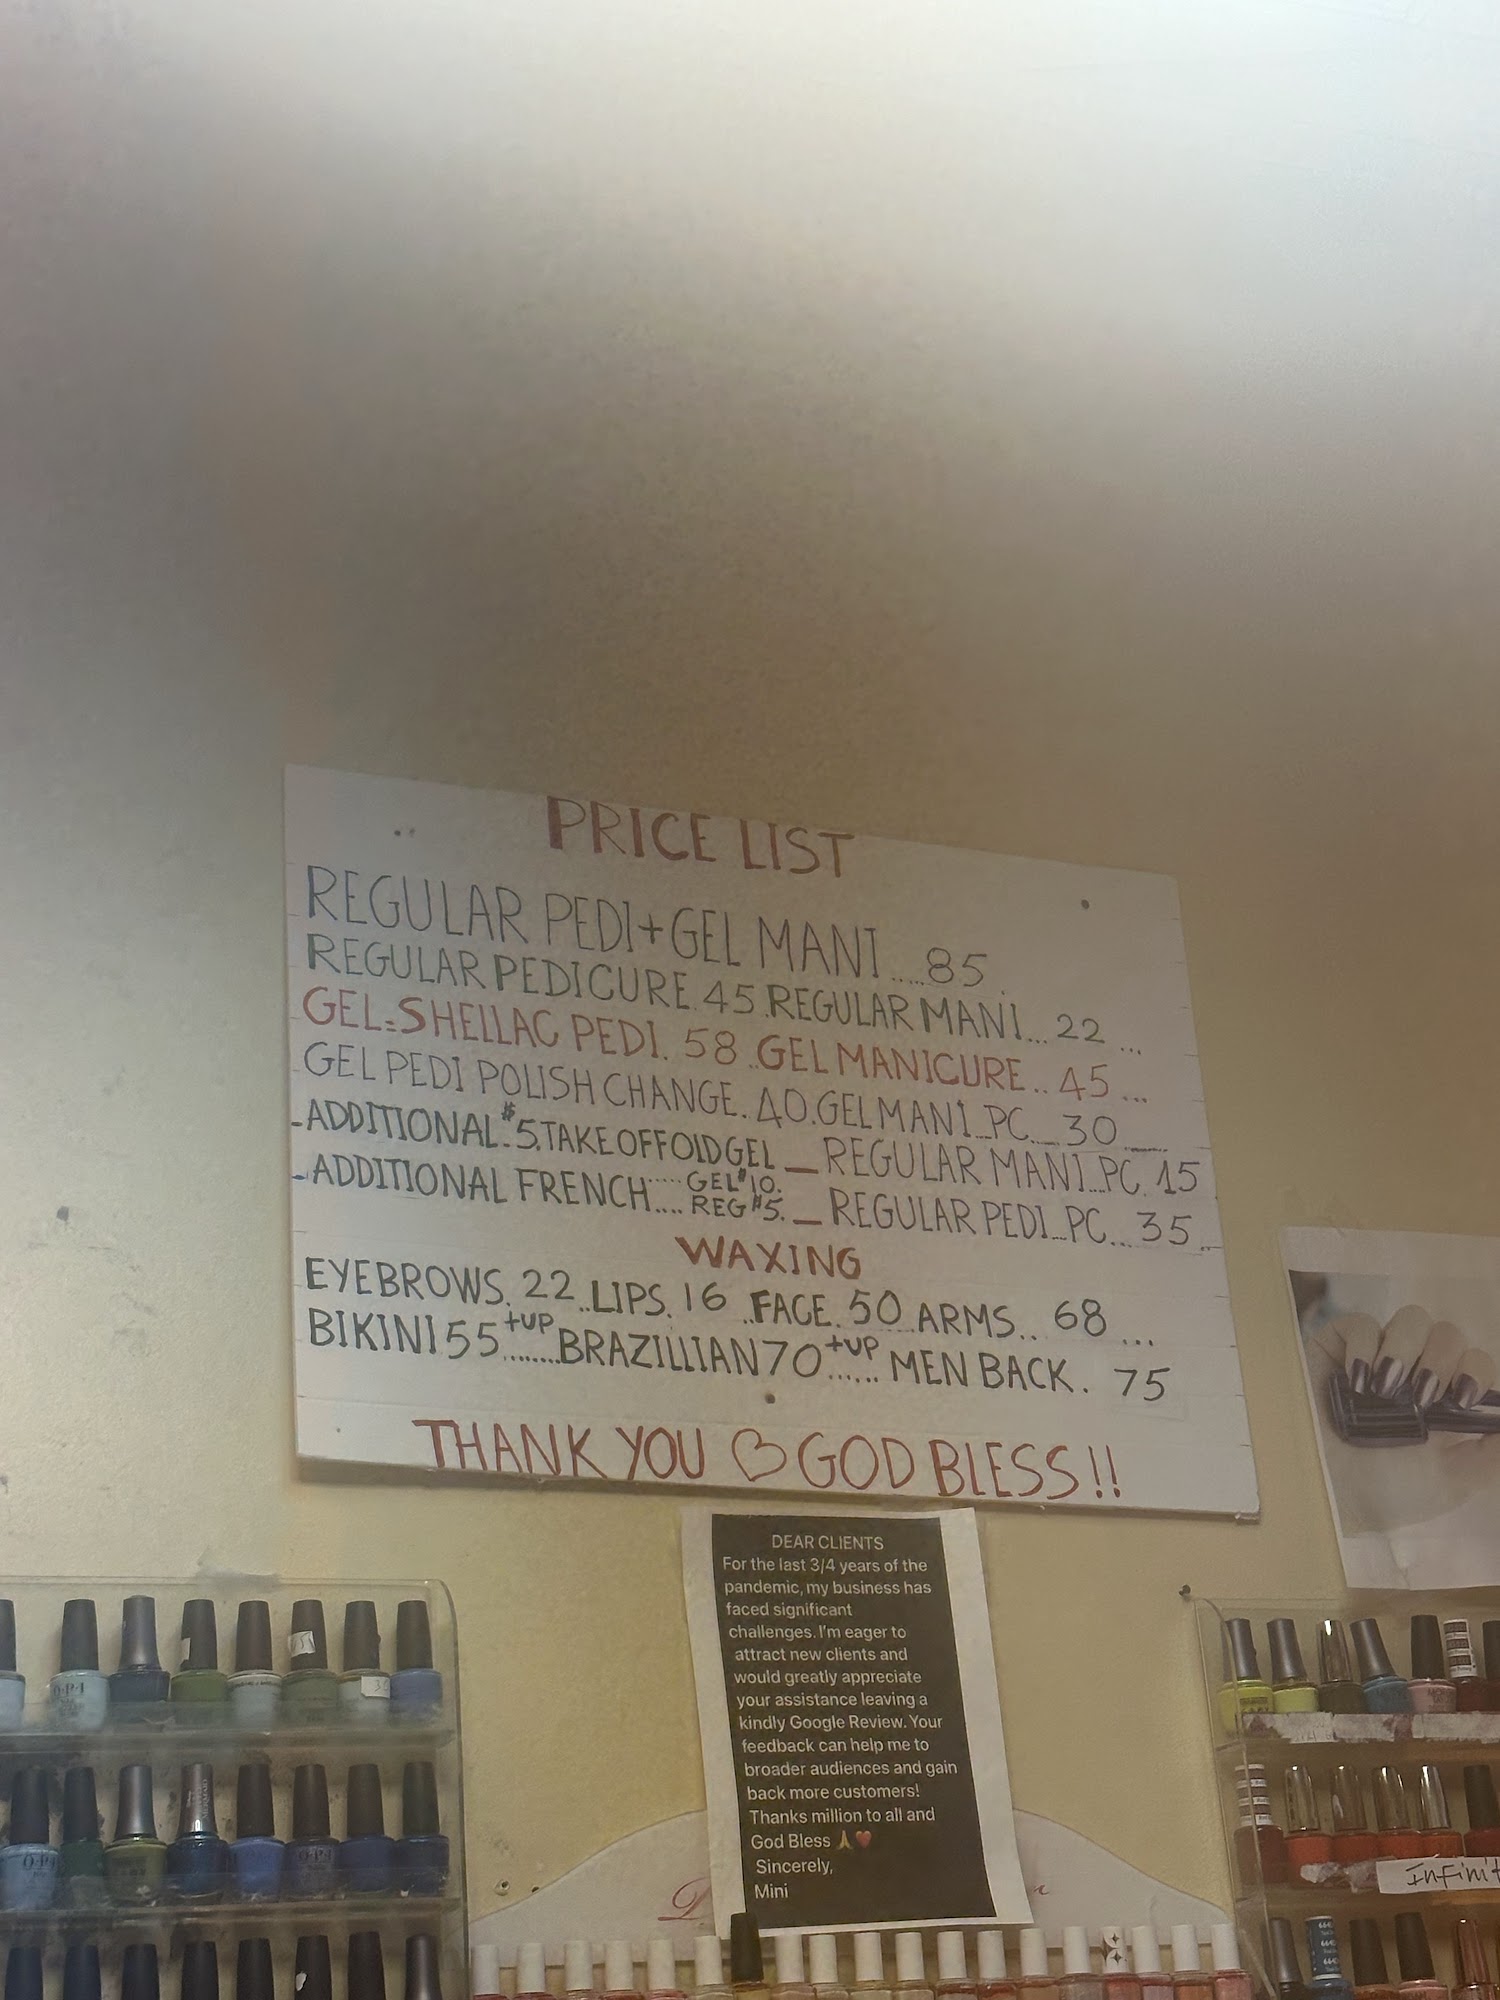 PRICE LIST
REGULAR PEDI+GEL MANI.....85.
REGULAR PEDICURE.45.REGULAR MANI...22...
GEL=SHELLAC PEDI.58..GEL MANICURE..45...
GEL PEDI POLISH CHANGE.40.GEL MANI...PC...30......
-ADDITIONAL.$5.TAKE OFF OLD GEL _ REGULAR MANI...PC.15
-ADDITIONAL FRENCH.... GEL $10. REG $5. _ REGULAR PEDI...PC...35..
WAXING
EYEBROWS.22..LIPS.16..FACE.50..ARMS..68...
BIKINI 55+UP........BRAZILLIAN 70+UP......MEN BACK. 75
THANK YOU ♡ GOD BLESS!!
DEAR CLIENTS
For the last 3/4 years of the
pandemic, my business has
faced significant
challenges. I'm eager to
attract new clients and
would greatly appreciate
your assistance leaving a
kindly Google Review. Your
feedback can help me to
broader audiences and gain
back more customers!
Thanks million to all and
God Bless 🙏❤️
Sincerely,
Mini
O·P·I
O·P·I